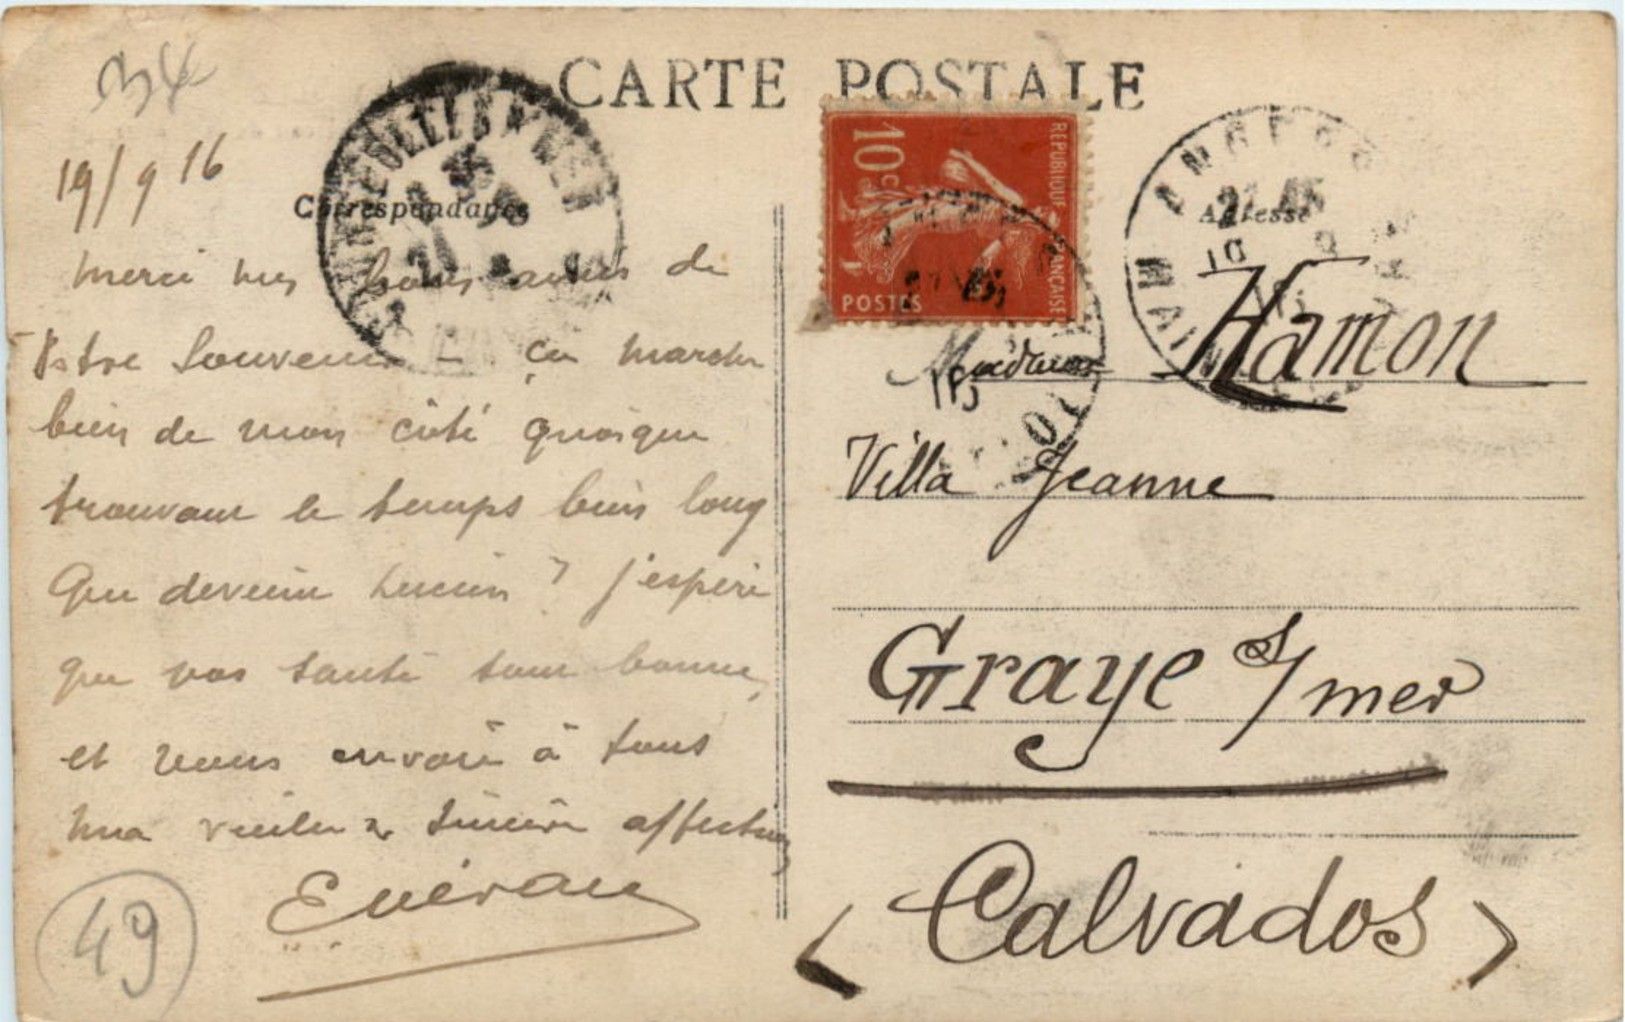 34
CARTE POSTALE
19/9 16
Correspondance
Adresse
10c
REPUBLIQUE FRANÇAISE
POSTES
ANGERS
21 45
merci mes bons amis de
Votre souvenir – ça marche
bien de mon côté quoique
trouvant le temps bien long
Que devient Lucien ? j'espère
que vos santé sont bonne,
et vous envoie à tous
ma vieille & sincère affection
49
Hamon
Villa Jeanne
Graye s/mer
Calvados